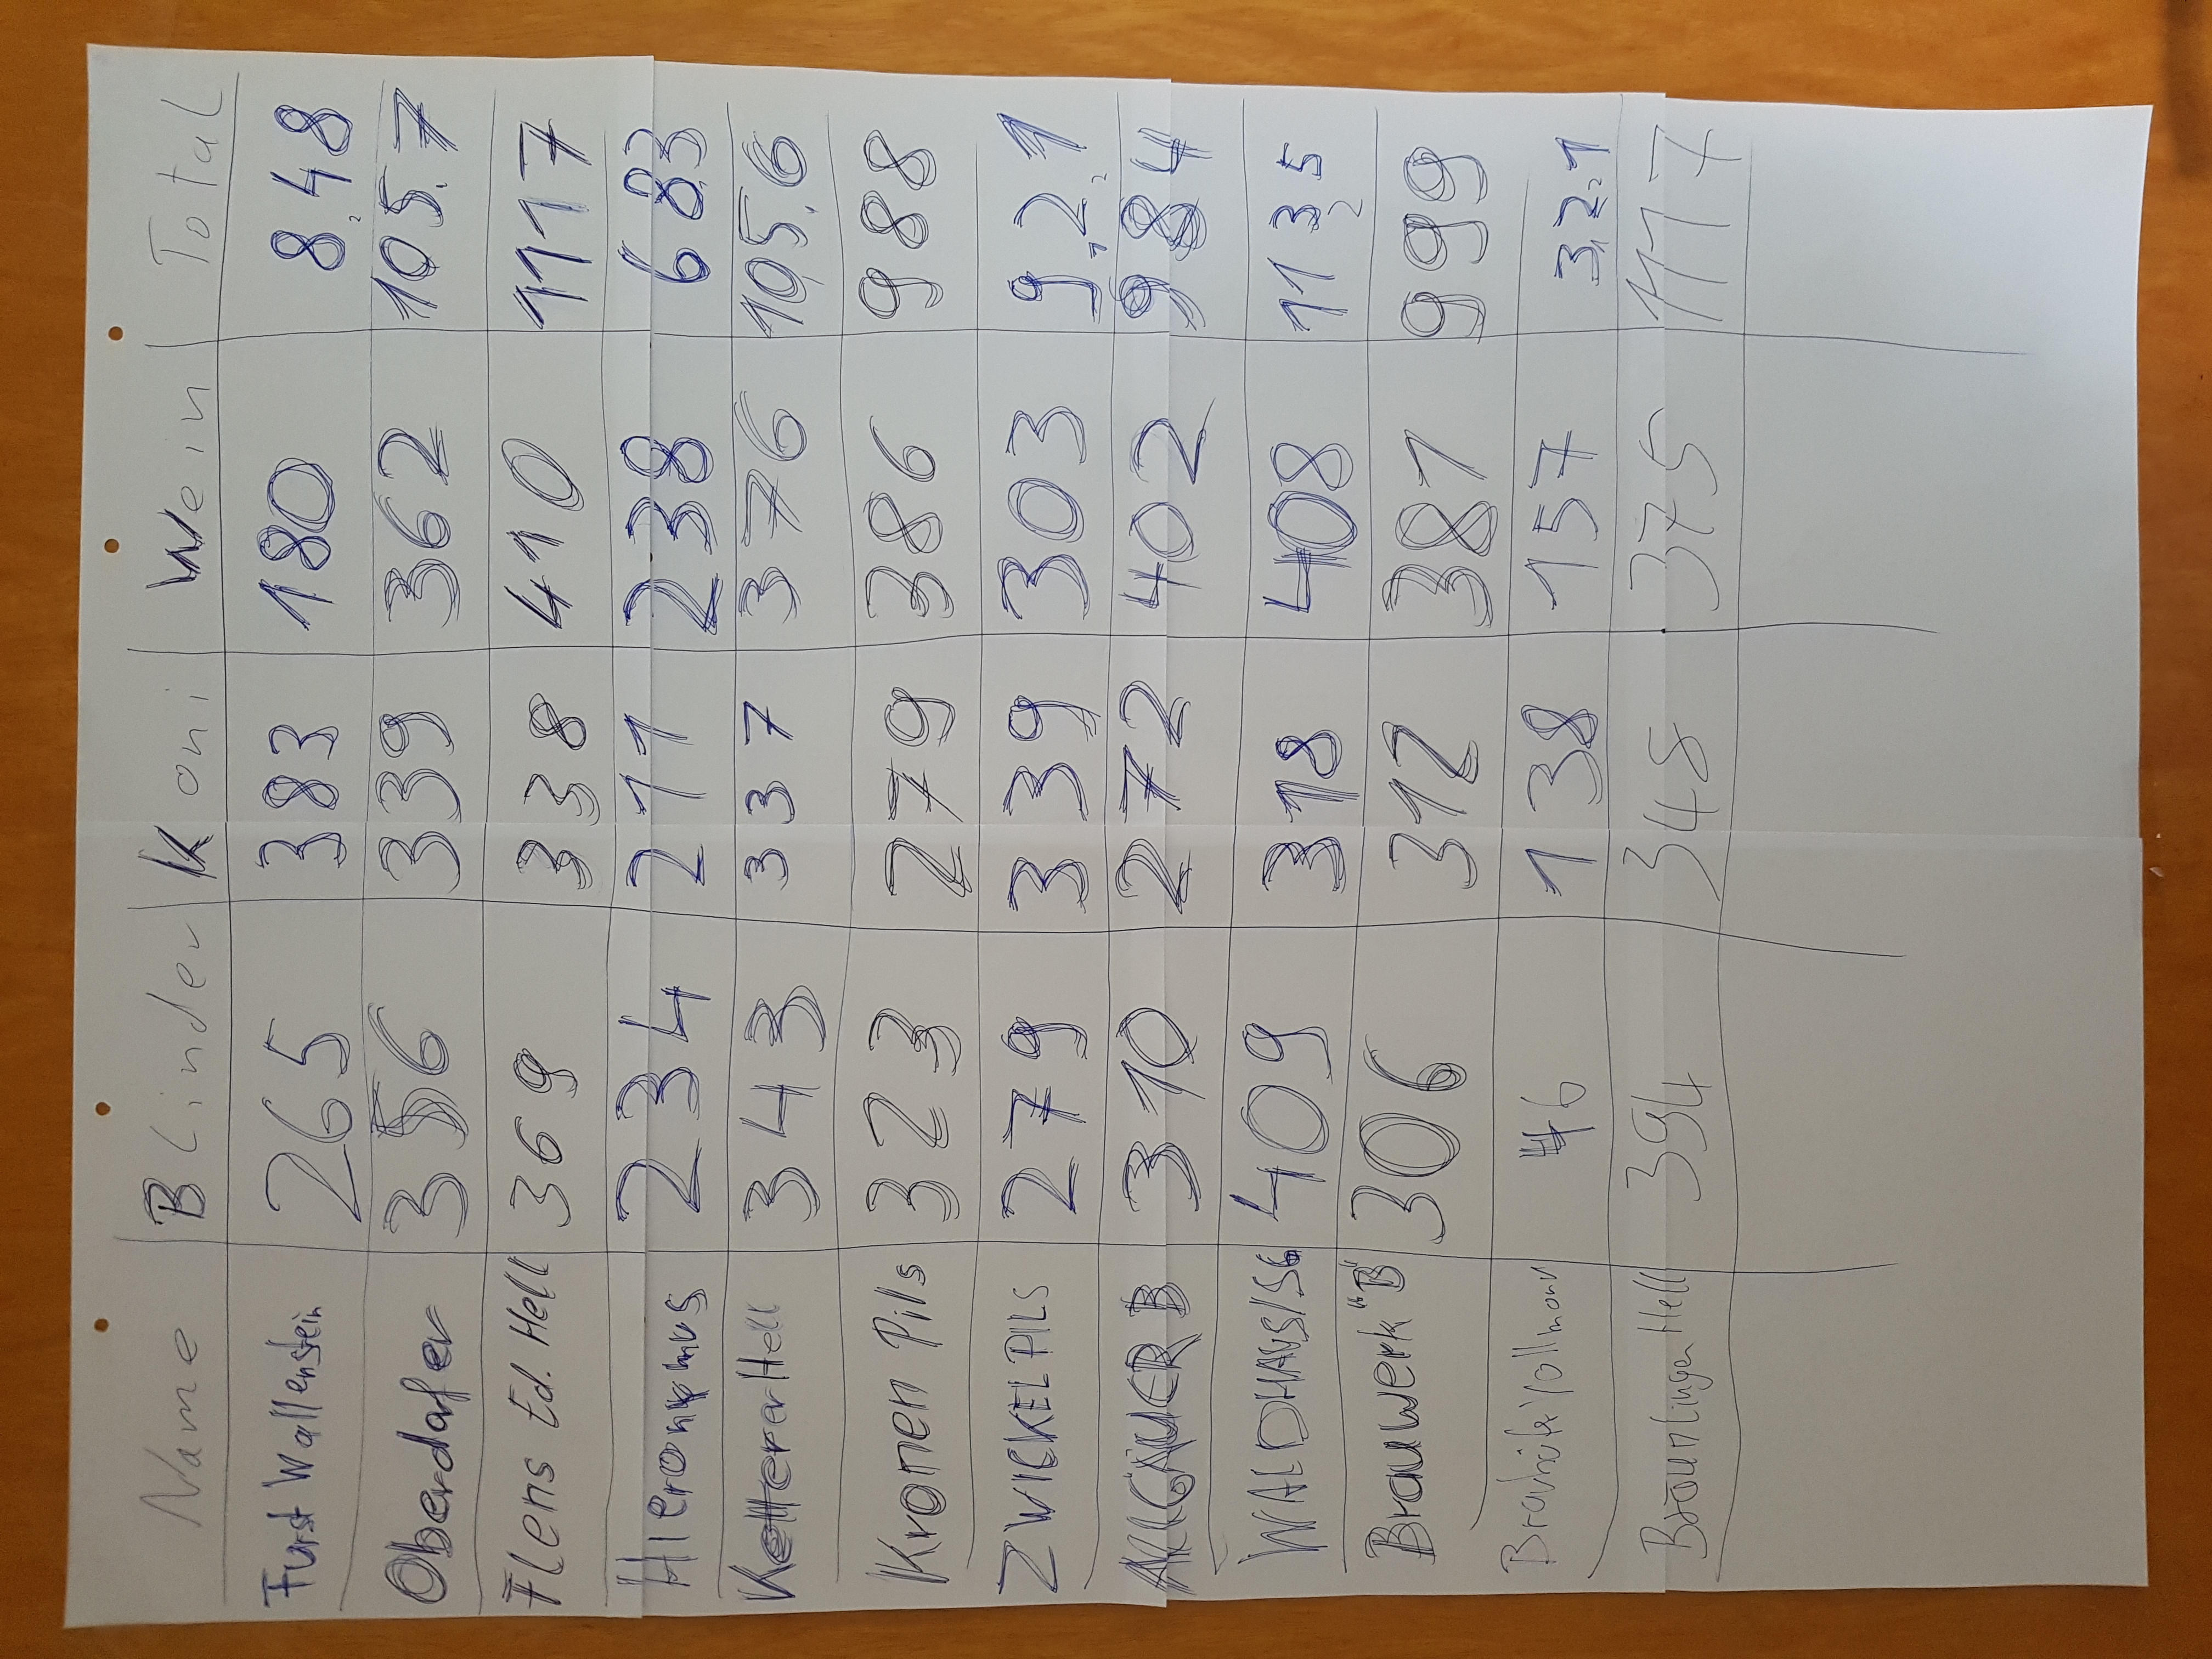 Name Blinder Koni Wein Total
Fürst Wallenstein 265 383 180 8,48
Oberdofer 356 339 362 105.7
Flens Ed. Hell 369 338 410 1117
234 211 238 683
Ketterer Hell 343 337 376 105.6
Kronen Pils 323 279 386 988
ZWICKEL PILS 279 339 303 9,21
310 272 402 984
WALDHAUS 409 318 408 1135
Brauwerk "B" 306 312 381 999
138 157 3,21
Bräunlinger Hell 394 348 375 1117